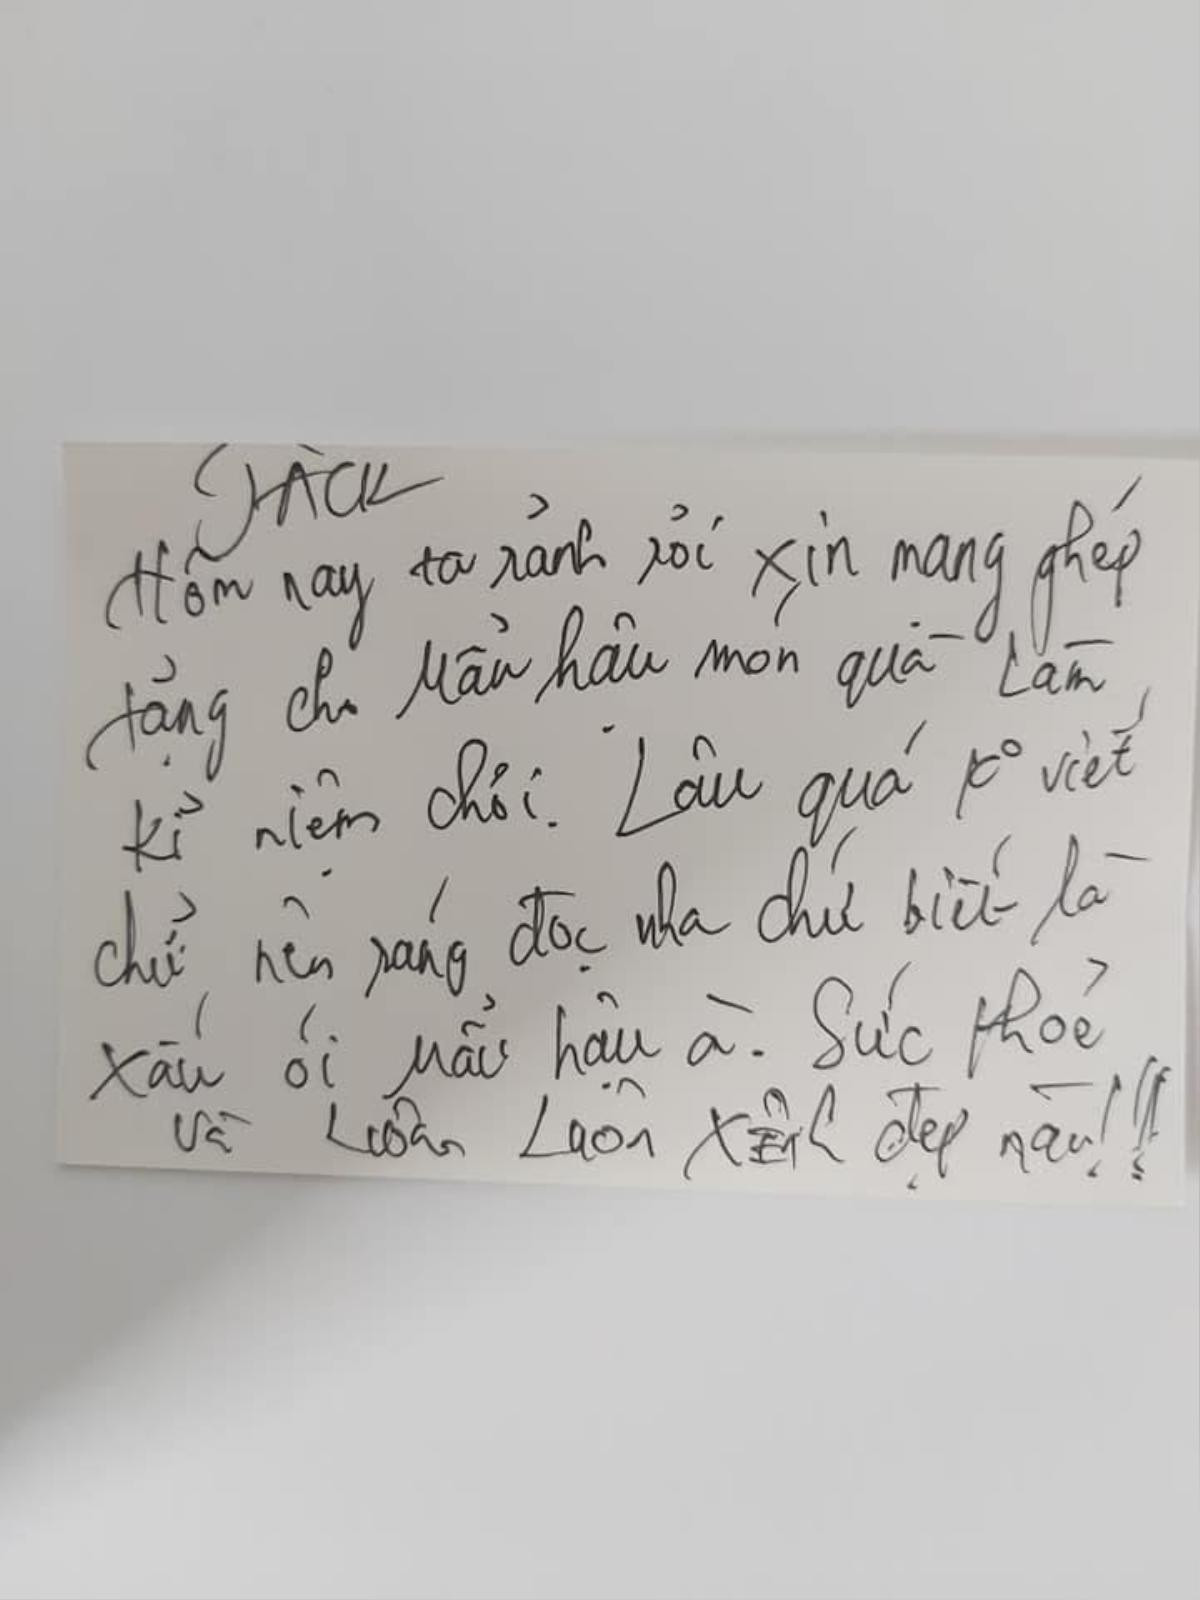 JACK
Hôm nay ta rảnh rỏi xin mang ghép
tặng cho Mẩu hậu món quà Làm
kỉ niệm chơi. Lâu quá ko viết
chử nên ráng đọc nha chứ biết là
xấu ói Mẩu hậu à. Sức thoẻ
và Luôn Luôn xinh đẹp nàu!!!